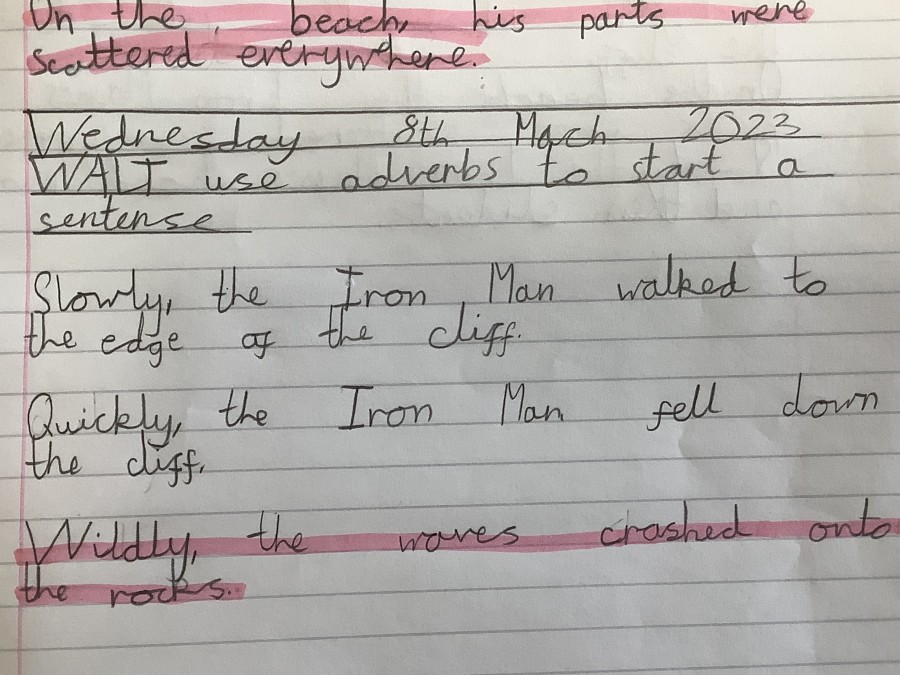 On the beach, his parts were
scattered everywhere.
Wednesday 8th Mach 2023
WALT use adverbs to start a
sentense
Slowly, the Iron Man walked to
the edge of the cliff.
Quickly, the Iron Man fell down
the cliff.
Wildly, the waves crashed onto
the rocks.